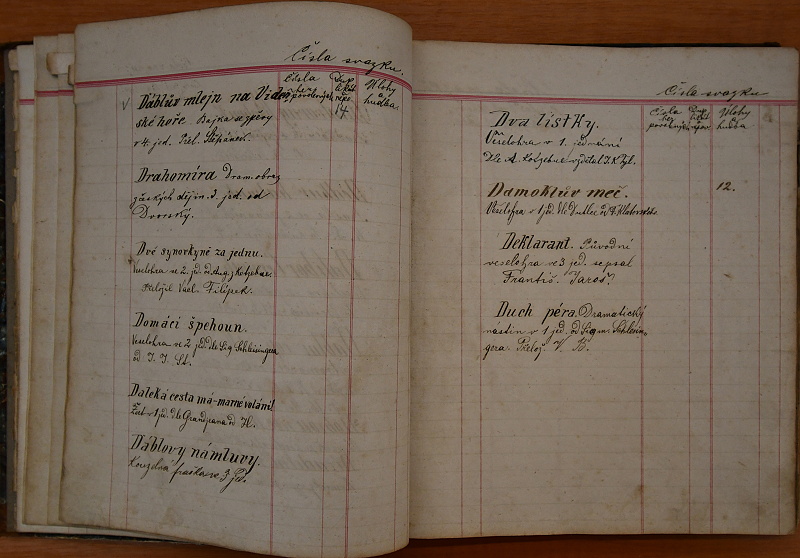 Čísla svazku.
Čísla Dup Úlohy
her likát hudba.
povolených répo
14
Ďáblův mlejn na Vídeň
ské hoře Bajka se zpěvy
v 4. jed. Přel. Štěpánek.
Drahomíra Dram. obraz
z českých dějin. 3. jed. od
Dvorský.
Dvě synovkyně za jednu.
Veselohra ve 2. jed. od Aug. z Kotzebue.
přeložil Václ. Filípek.
Domácí špehoun.
Veselohra ve 2 jed. dle Sig. Schlesingera
od J. J. St.
Daleká cesta má-marné volání!
Žert v 1 jed. dle Grandjeana od H.
Ďáblovy námluvy.
Kouzelná fraška ve 3 jed.
Čísla svazku
Čísla Dup Úlohy
her likát hudba
povolených répov
Dva lístky.
Veselohra v 1. jednání
Dle A. Kotzebue vzdělal J. K. Tyl.
Damoklův meč. 12.
Veselohra v 1 jed. dle od F. Klatovského
Deklarant. Původní
veselohra ve 3 jed. sepsal
Františ. Jaroš.
Duch péra. Dramatický
nástin v 1 jed. od Sigm. Schlesin-
gera. Přelož. V. B.